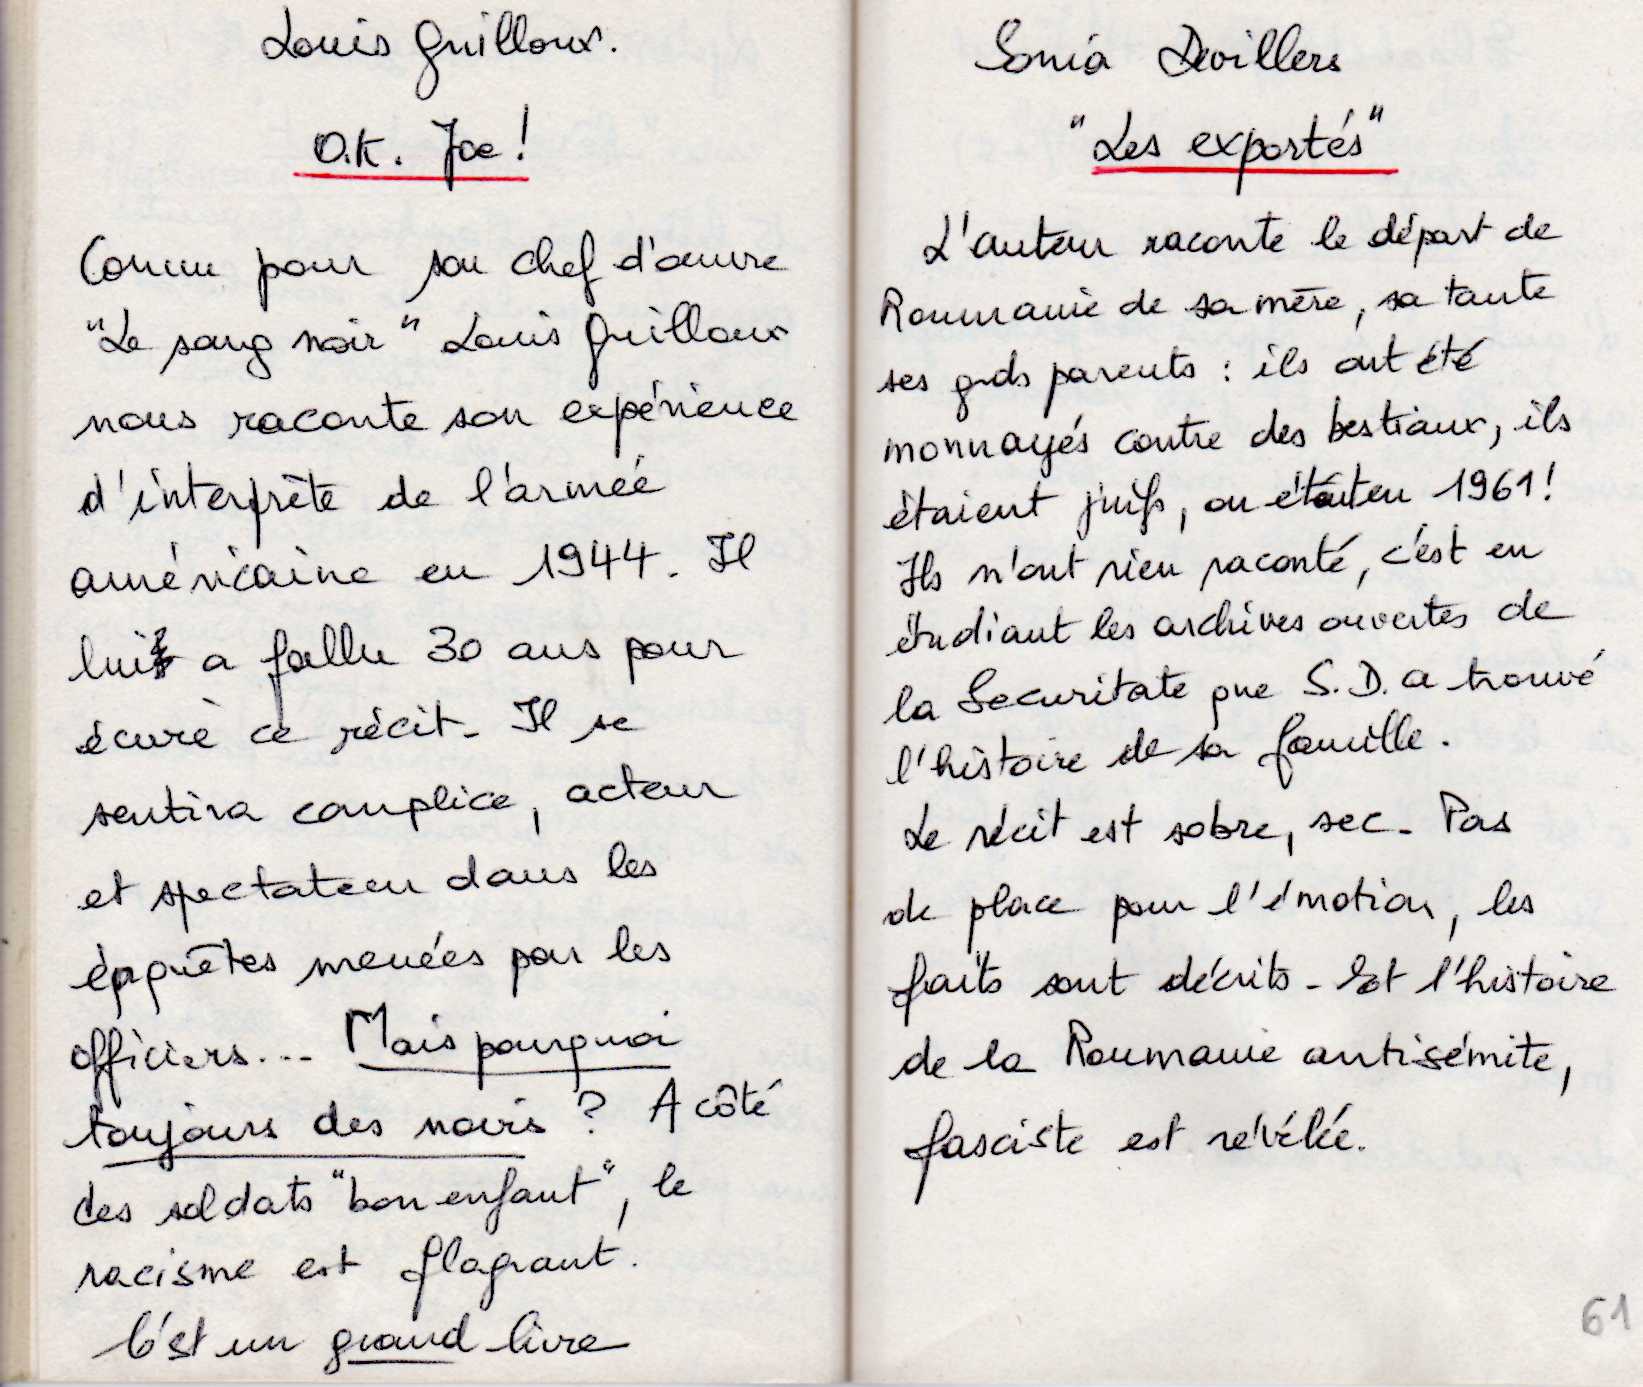 Louis Guilloux.
O.K. Joe!
Connu pour son chef d'œuvre
"Le sang noir" Louis Guilloux
nous raconte son expérience
d'interprète de l'armée
américaine en 1944. Il
lui a fallu 30 ans pour
écrire ce récit. Il se
sentira complice, acteur
et spectateur dans les
enquêtes menées par les
officiers... Mais pourquoi
toujours des noirs ? A côté
des soldats "bon enfant", le
racisme est flagrant.
C'est un grand livre
Sonia Devillers
"Les exportés"
L'auteur raconte le départ de
Roumanie de sa mère, sa tante
ses gds parents : ils ont été
monnayés contre des bestiaux, ils
étaient juifs, on était en 1961!
Ils n'ont rien raconté, c'est en
étudiant les archives ouvertes de
la Securitate que S.D. a trouvé
l'histoire de sa famille.
Le récit est sobre, sec. Pas
de place pour l'émotion, les
faits sont décrits. Et l'histoire
de la Roumanie antisémite,
fasciste est révélée.
61